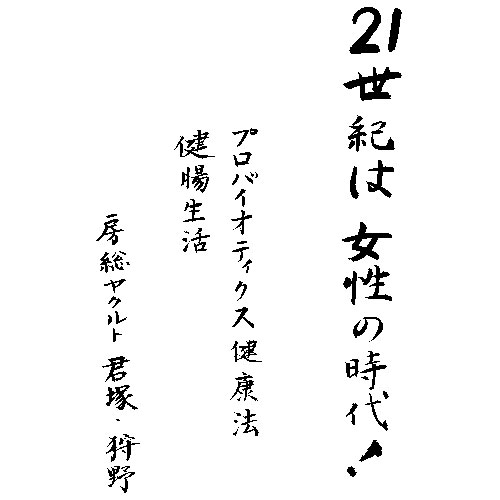 21世紀は女性の時代!
プロバイオティクス健康法
健腸生活
房総ヤクルト 君塚・狩野